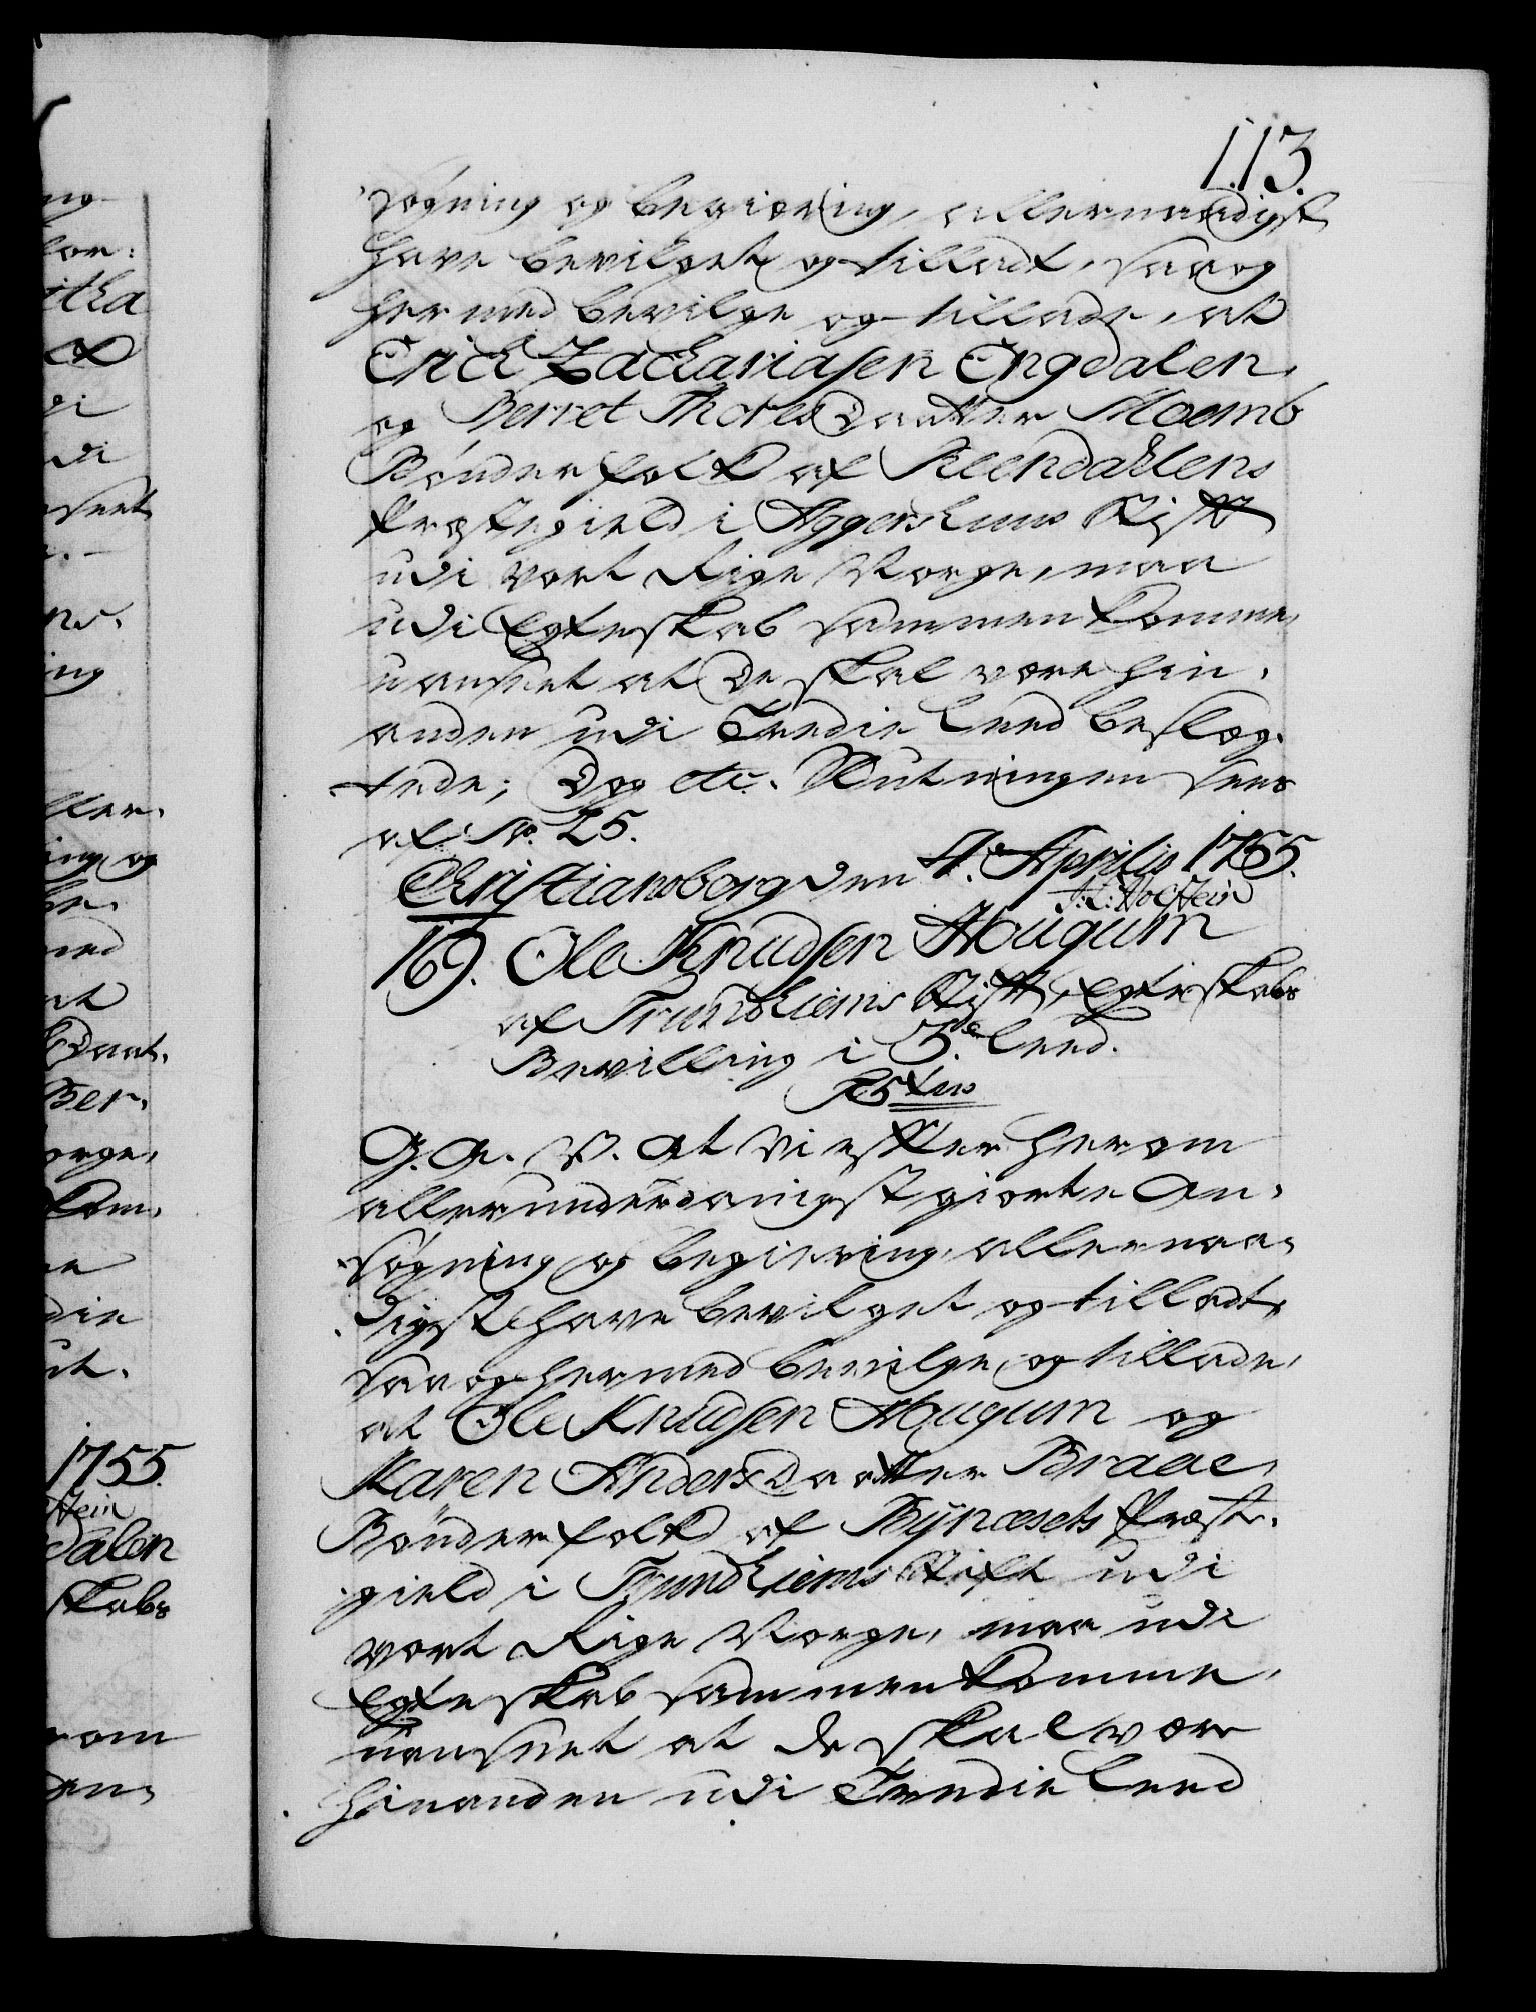 113.
søgning og begiering, allernaadigst
have bevilget og tilladt, saa og
hermed bevilge og tillade, at
Erich Zachariasen Engdalen,
og Berret Thores Daatter Moemb
Bønderfolk af Reendahlens
Præstegield i Aggershuus Stift
udi vort Rige Norge, maa
udi Egteskab sammenkomme,
uanseet at De skal være hin,
anden udi Tredie Leed beslæg,
tede; Dog etc. Slutningen sees
af No. 25.
Christiansborg den 4. Aprilis 1755.
J. L. Holstein
169. Ole Knudsen Hougum
af Trundhiems Stift, Egteskabs
Bevilling i 3die Leed.
G. A. V. At Vi efter herom
allerunderdanigst giorte An,
søgning og begiering, allernaa,
digst have bevilget og tilladt,
saa og hermed bevilge og tillade,
at Ole Knudsen Hougum og
Karen Anders Daatter Braae,
Bønderfolk af Bÿnæsets Præste,
gield i Trundhiems Stift udi
vort Rige Norge, maa udi
Egteskab sammenkomme,
uanseet at de skal være
hinanden udi Tredie Leed